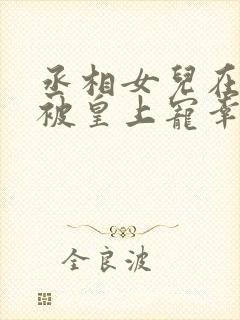 丞相女兒在
被皇上寵幸
全良波